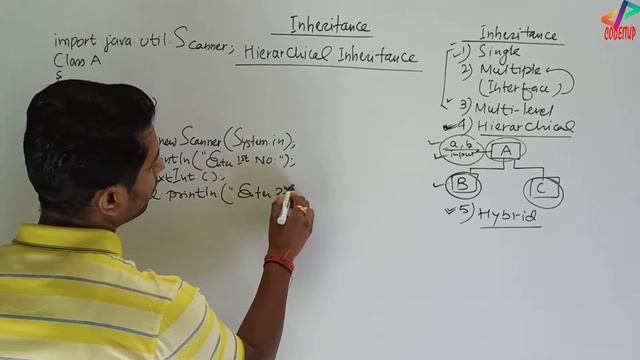 Inheritance
import java.util.Scanner;
Hierarchical Inheritance
Class A
{
new Scanner(System.in);
ntln("Enter 1st No:");
xtInt();
println("Enter 2nd
Inheritance
1) Single
2) Multiple
(Interface)
3) Multi-level
4) Hierarchical
a, b
input
A
B
C
5) Hybrid
CODEITUP